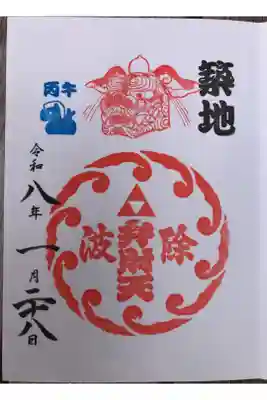 築地
丙午
波除
弁財天
令和八年一月二十八日